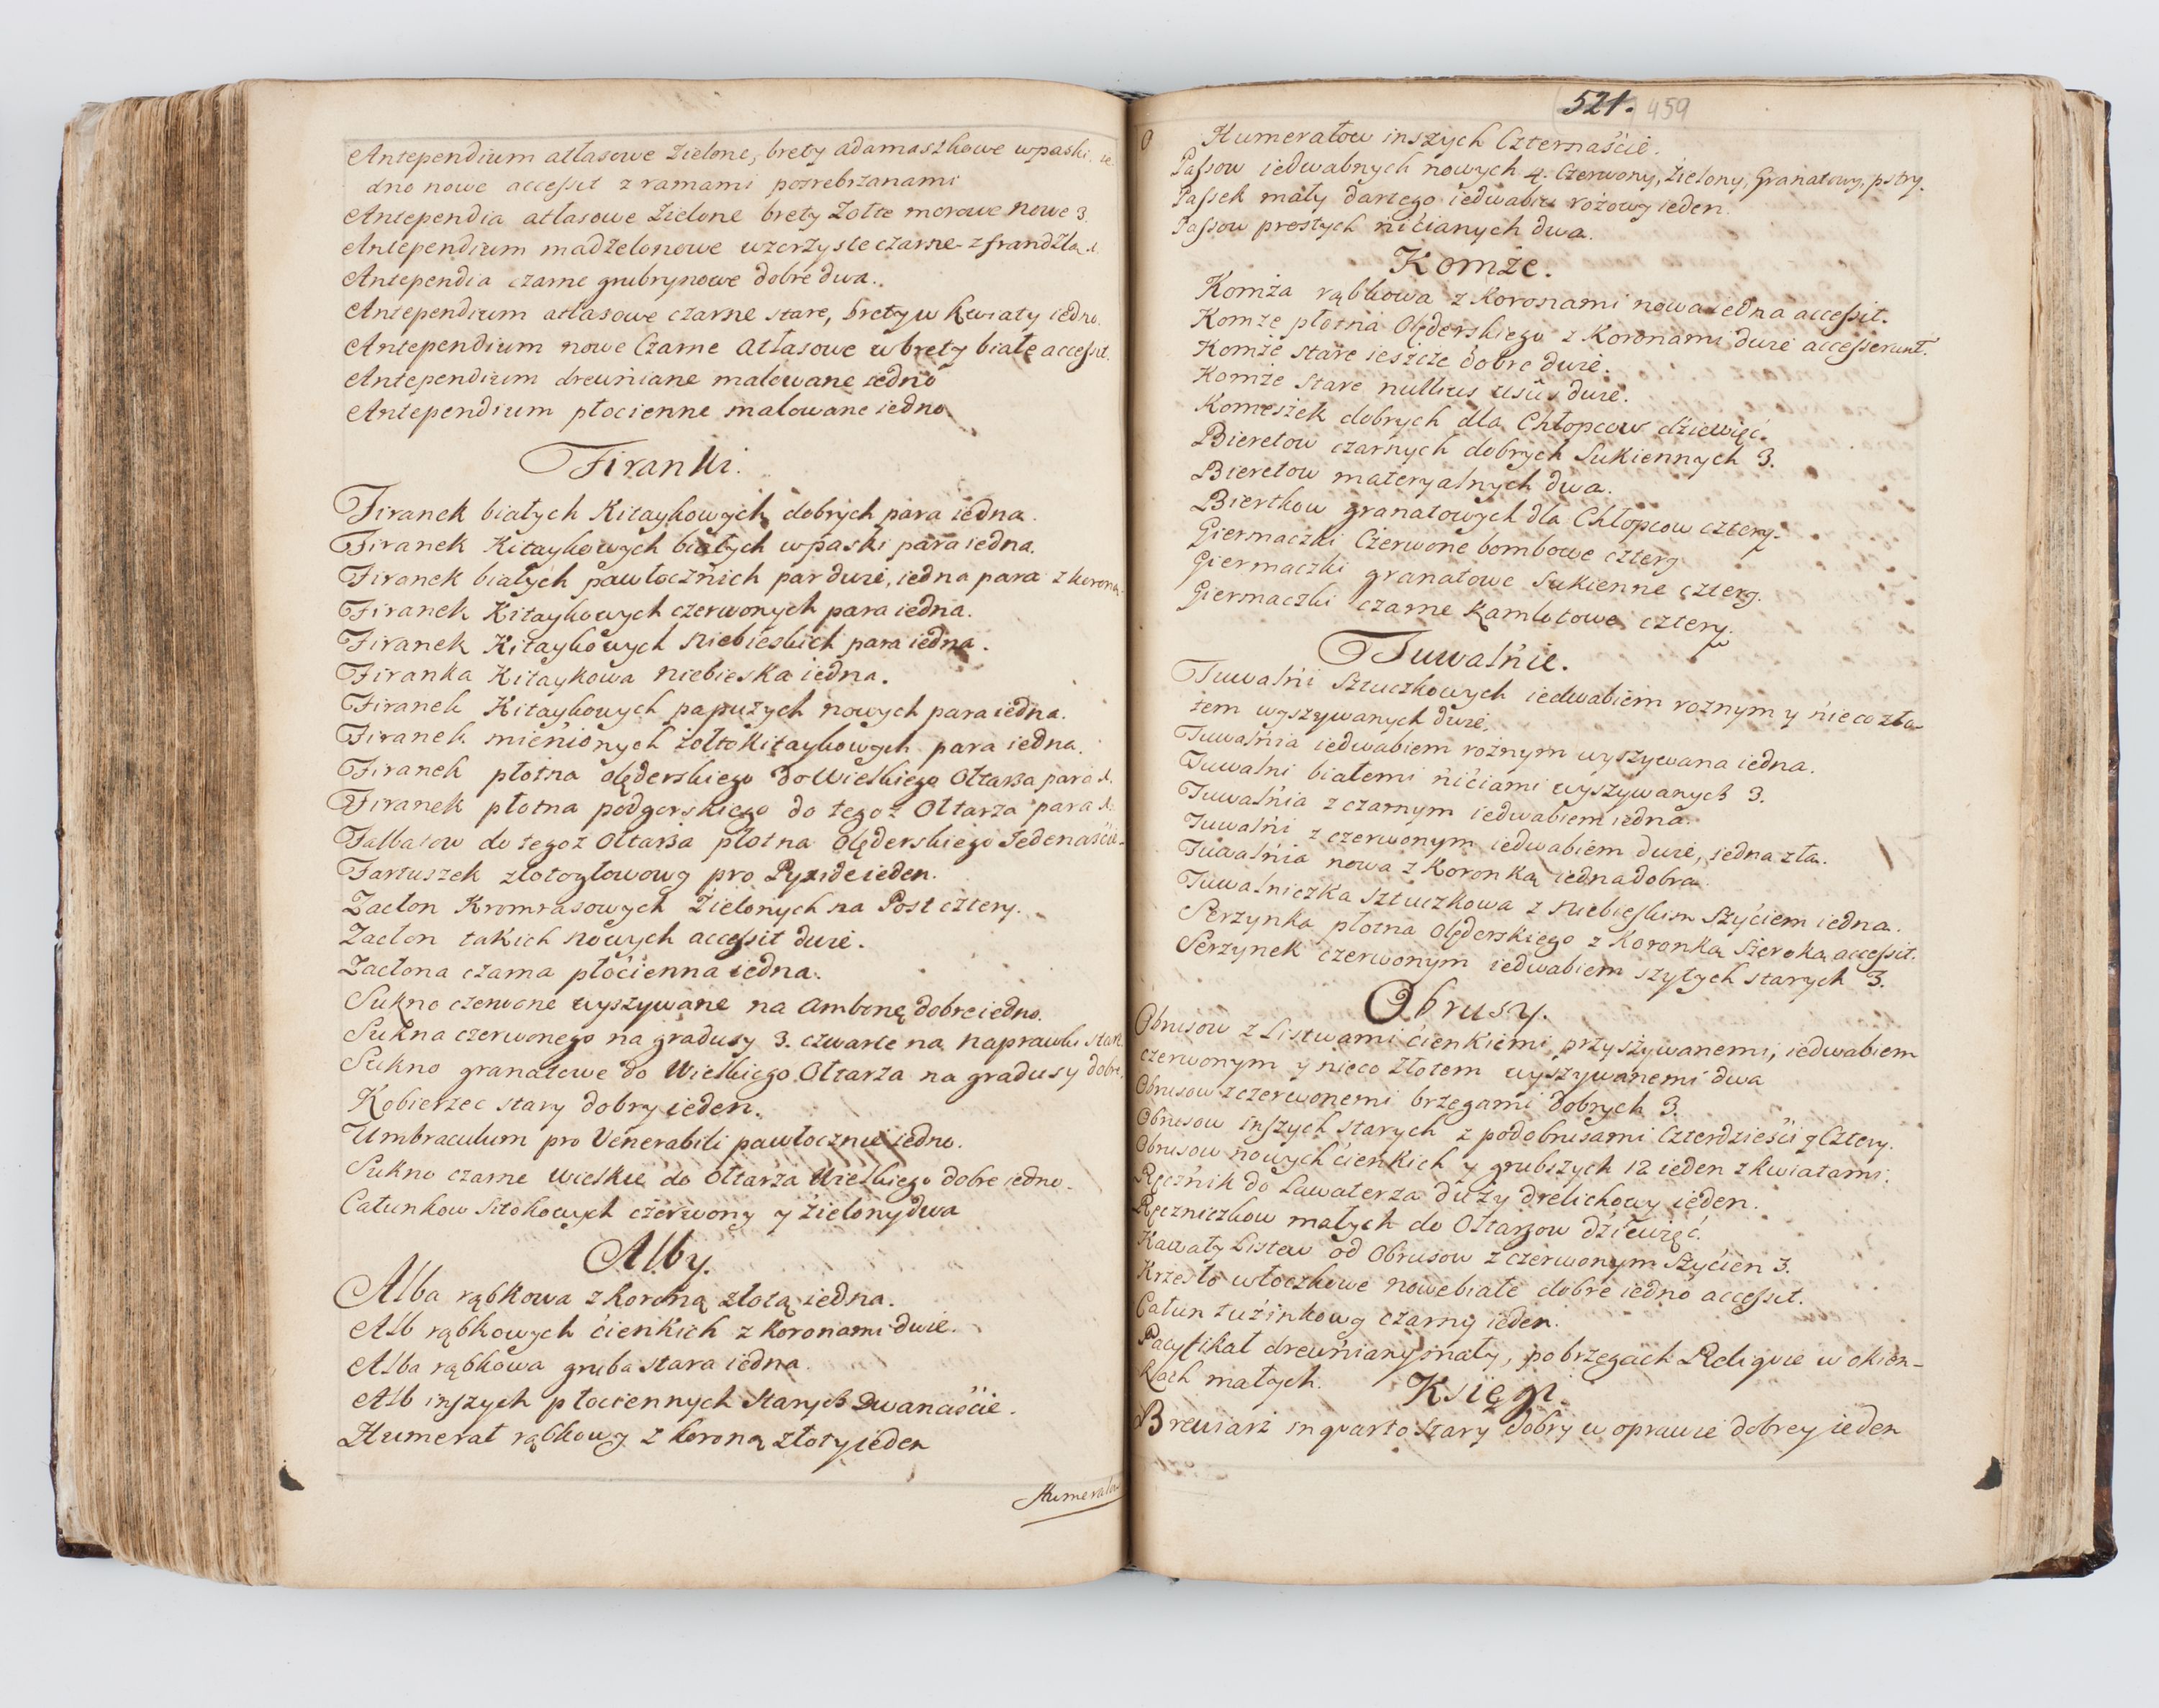 Antependium atłasowe Zielone, brety adamaszkowe w paski ie-
dno nowe accessit z ramami pozrebrzanami
Antependia atłasowe Zielone brety Zołte morowe nowe 3.
Antependium madzelonowe wzorzyste czarne z frandzlą 1.
Antependia czarne grubrynowe dobre dwa.
Antependium atłasowe czarne stare, brety w kwiaty iedno.
Antependium nowe Czarne Atłasowe w brety białe accessit.
Antependium drewniane malowane iedno
Antependium płocienne malowane iedno
Firanki.
Firanek białych Kitaykowych dobrych para iedna.
Firanek Kitaykowych białych w paski para iedna.
Firanek białych pawłocznich par dwie, iedna para z koroną
Firanek Kitaykowych czerwonych para iedna.
Firanek Kitaykowych Niebieskich para iedna.
Firanka Kitaykowa niebieska iedna.
Firanek Kitaykowych papuzych nowych para iedna.
Firanek mienionych żołto Kitaykowych para iedna.
Firanek płotna olęderskiego do Wielkiego Ołtarza para 1.
Firanek płotna podgorskiego do tegoż Ołtarza para 1.
Falbatow do tegoż Ołtarza płotna Olęderskiego Jedenaście.
Fartuszek złotogłowowy pro Pyxide ieden.
Zasłon Kromrasowych Zielonych na Post cztery.
Zasłon takich nowych accessit dwie.
Zasłona czarna płócienna iedna.
Sukno czerwone wyszywane na Ambonę dobre iedno.
Sukna czerwonego na gradusy 3. czwarte na naprawki stare
Sukno granatowe do Wielkiego Ołtarza na gradusy dobre.
Kobierzec stary dobry ieden.
Umbraculum pro Venerabili pawłocznie iedno.
Sukno czarne wielkie do Ołtarza Wielkiego dobre iedno.
Całunkow sitokowych czerwony y zielony dwa
Alby.
Alba rąbkowa z koroną złotą iedna.
Alb rąbkowych cienkich z koronami dwie.
Alba rąbkowa gruba stara iedna.
Alb inszych płociennych Starych Dwanaście.
Humerał rąbkowy z koroną złoty ieden
Humerałow
521. 459
Humerałow inszych Czternaście.
Passow iedwabnych nowych 4. Czerwony, Zielony, Granatowy, pstry.
Passek mały dartego iedwabiu rożowy ieden.
Passow prostych nićianych dwa.
Komże.
Komża rąbkowa z Koronami nowa iedna accessit.
Komże płotna Olęderskiego z Koronami dwie accesserunt.
Komże stare ieszcze dobre dwie.
Komże stare nullius usûs dwie.
Komeszek dobrych dla Chłopcow dziewięć.
Bieretow czarnych dobrych Sukiennych 3.
Bieretow materyalnych dwa.
Biertkow granatowych dla Chłopcow cztery.
Giermaczki Czerwone bombowe cztery
Giermaczki granatowe Sukienne cztery.
Giermaczki czarne Kamlotowe cztery.
Tuwalnie.
Tuwalni Sztuczkowych iedwabiem roznym y nieco zło-
tem wyszywanych dwie.
Tuwalnia iedwabiem rożnym wyszywana iedna.
Tuwalni białemi nićiami wyszywanych 3.
Tuwalnia z czarnym iedwabiem iedna.
Tuwalni z czerwonym iedwabiem dwie, iedna zła.
Tuwalnia nowa z Koronką iedna dobra.
Tuwalniczka Sztuczkowa z Niebieskim Szyciem iedna.
Serzynka płotna Olęderskiego z Koronką Szeroką accessit.
Serzynek czerwonym iedwabiem szytych starych 3.
Obrusy.
Obrusow z Listwami cienkiemi przyszywanemi, iedwabiem
czerwonym y nieco złotem wyszywanemi dwa
Obrusow z czerwonemi brzegami dobrych 3.
Obrusow inszych Starych z podobrusami Czterdzieści y Cztery.
Obrusow nowych cienkich y grubszych 12 ieden z kwiatami.
Ręcznik do Lawaterza duży drelichowy ieden.
Ręczniczkow małych do Ołtarzow dziewięć.
Kawały Listew od Obrusow z czerwonym Szycien 3.
Krzesło włoczkowe nowe białe dobre iedno accessit.
Całun tuzinkowy czarny ieden.
Pacyfikał drewniany mały, po brzegach Reliqvie w okien-
kach małych.
Księgi.
Brewiarz in qvarto Stary dobry w oprawie dobrey ieden